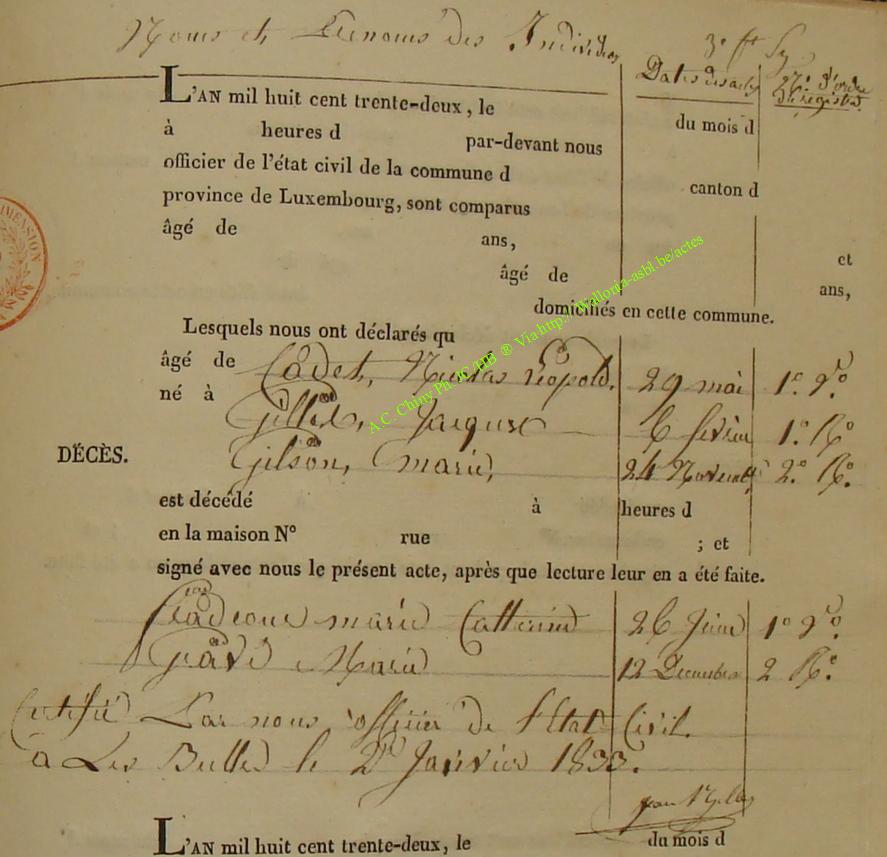 Noms et Prénoms des Individus
Dates des actes
N° d'ordre du registre
L'AN mil huit cent trente-deux, le du mois d
à heures d par-devant nous
officier de l'état civil de la commune d canton d
province de Luxembourg, sont comparus
âgé de ans, et
âgé de ans,
domiciliés en cette commune.
Lesquels nous ont déclarés qu
âgé de Cadet, Nicolas Léopold, 29 mai 1°
né à
Gillet, Jacques 6 février 1° R°
DÉCÈS. Gilson, marie, 24 Novemb 2° R°
est décédé à heures d
en la maison N° rue ; et
signé avec nous le présent acte, après que lecture leur en a été faite.
marie Catherine 26 1°
Marie 12 Décembre 2 R°
Certifié Par nous officier de l'Etat Civil.
à Les Bulles le 2 Janvier 1833.
L'AN mil huit cent trente-deux, le du mois d
A.C. Chiny Ph. JC JHB ® Via http://Wallonia-asbl.be/actes